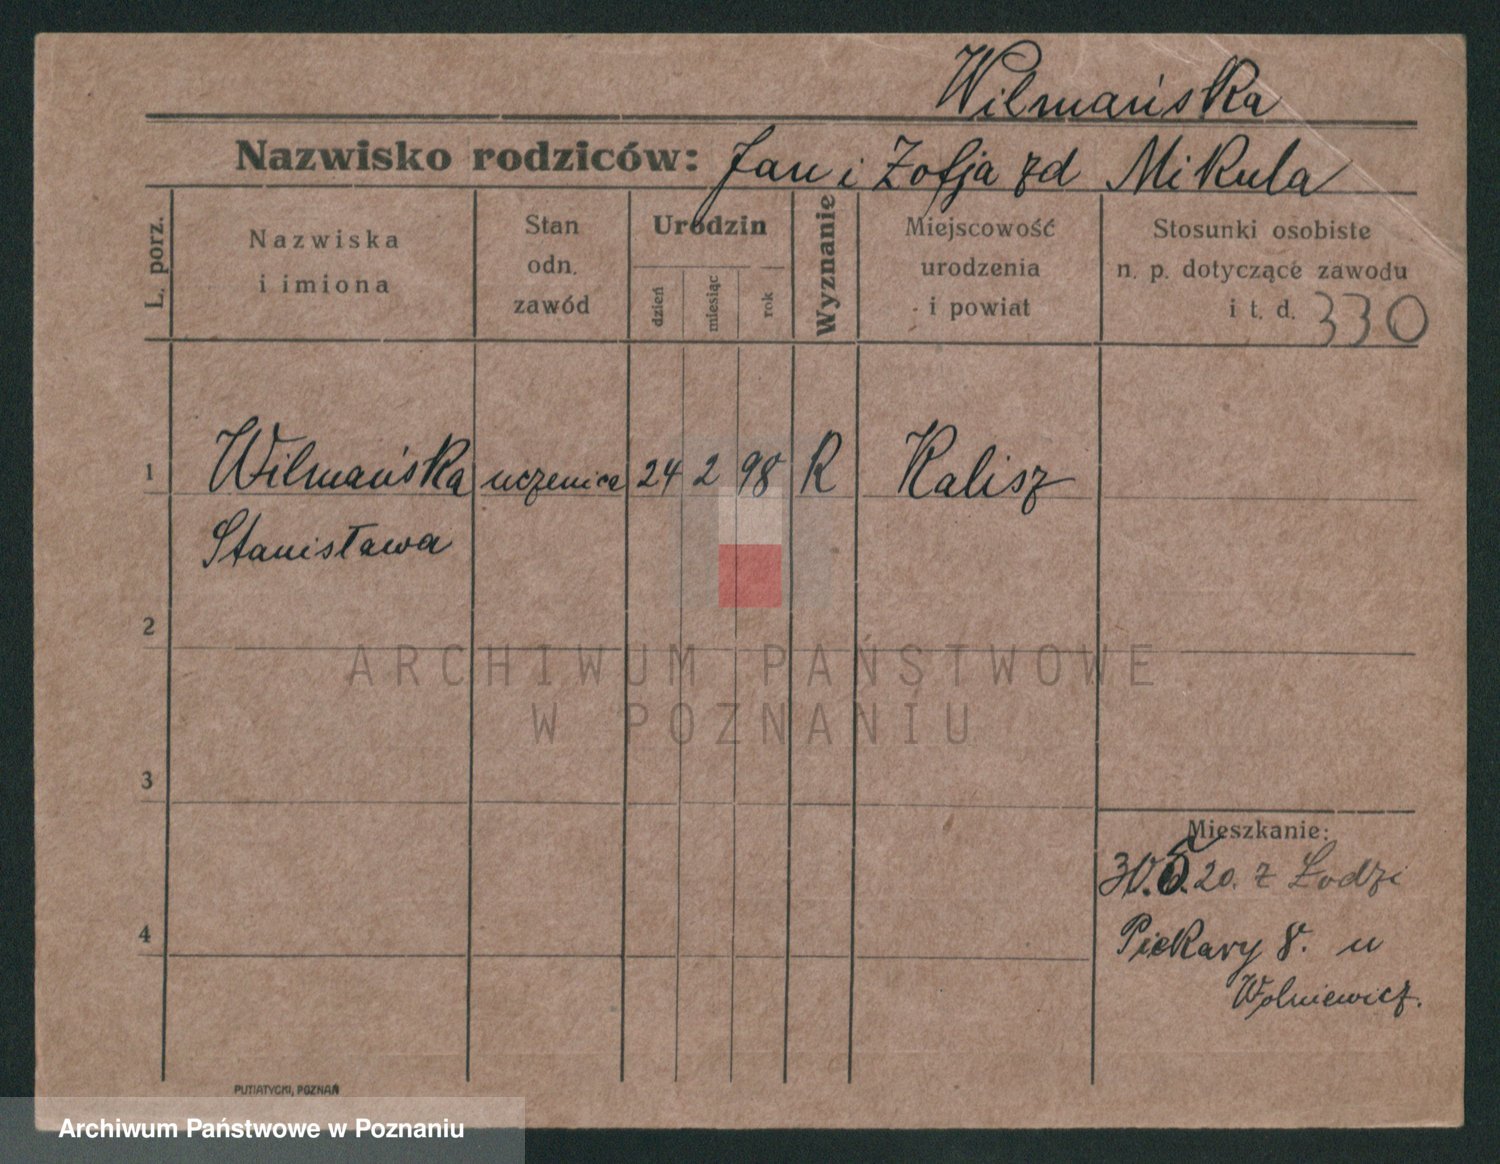 Wilmańska
Nazwisko rodziców: Jan i Zofja zd Mikula
L. porz.
Nazwiska
i imiona
Stan
odn.
zawód
Urodzin
dzień
miesiąc
rok
Wyznanie
Miejscowość
urodzenia
i powiat
Stosunki osobiste
n. p. dotyczące zawodu
i t. d. 330
1 Wilmańska uczenica 24 2 98 R Kalisz
Stanisława
2
ARCHIWUM PAŃSTWOWE
W POZNANIU
3
Mieszkanie:
30. 20. z Łodzi
4
Piekary 8. u
Wolniewicz.
PUTIATYCKI, POZNAŃ
Archiwum Państwowe w Poznaniu